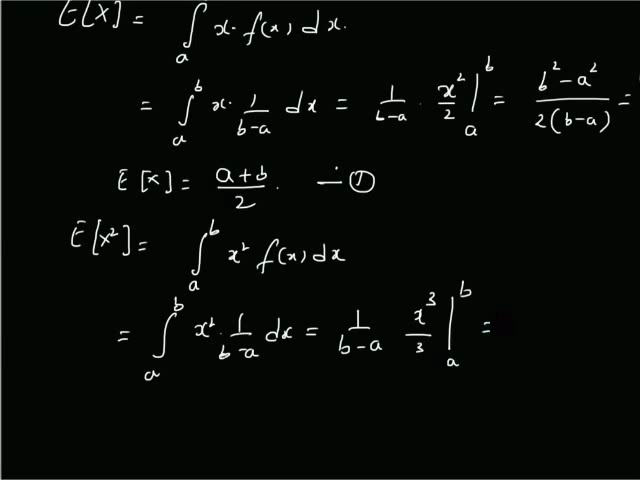 E[X] = ∫_a x. f(x) dx.
= ∫_a^b x. 1/(b-a) dx = 1/(b-a) · x²/2 |_a^b = (b²-a²)/(2(b-a)) =
E[X] = (a+b)/2. — ①
E[X²] = ∫_a^b x² f(x) dx
= ∫_a^b x². 1/(b-a) dx = 1/(b-a) x³/3 |_a^b =